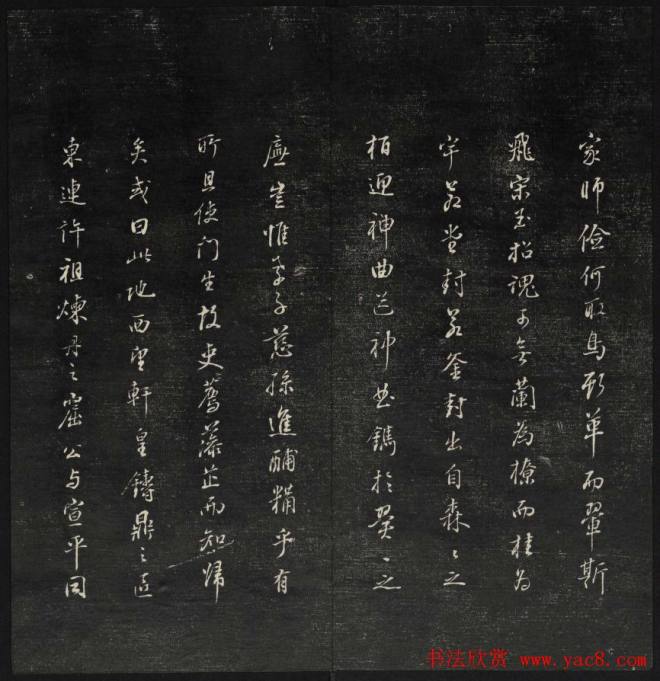 家師儉何取鳥革而翬斯
飛宋玉招魂可無蘭為橑而桂為
宇若堂封若釜封出自森〻之
栢迎神曲送神曲鐫於翼〻之
廬豈惟孝子慈孫進酺糈乎有
所且使门生故吏薦藻芷而知歸
矣或曰此地西望軒皇鑄鼎之區
東連許祖煉丹之窟公与宣平同
书法欣赏 www.yac8.com